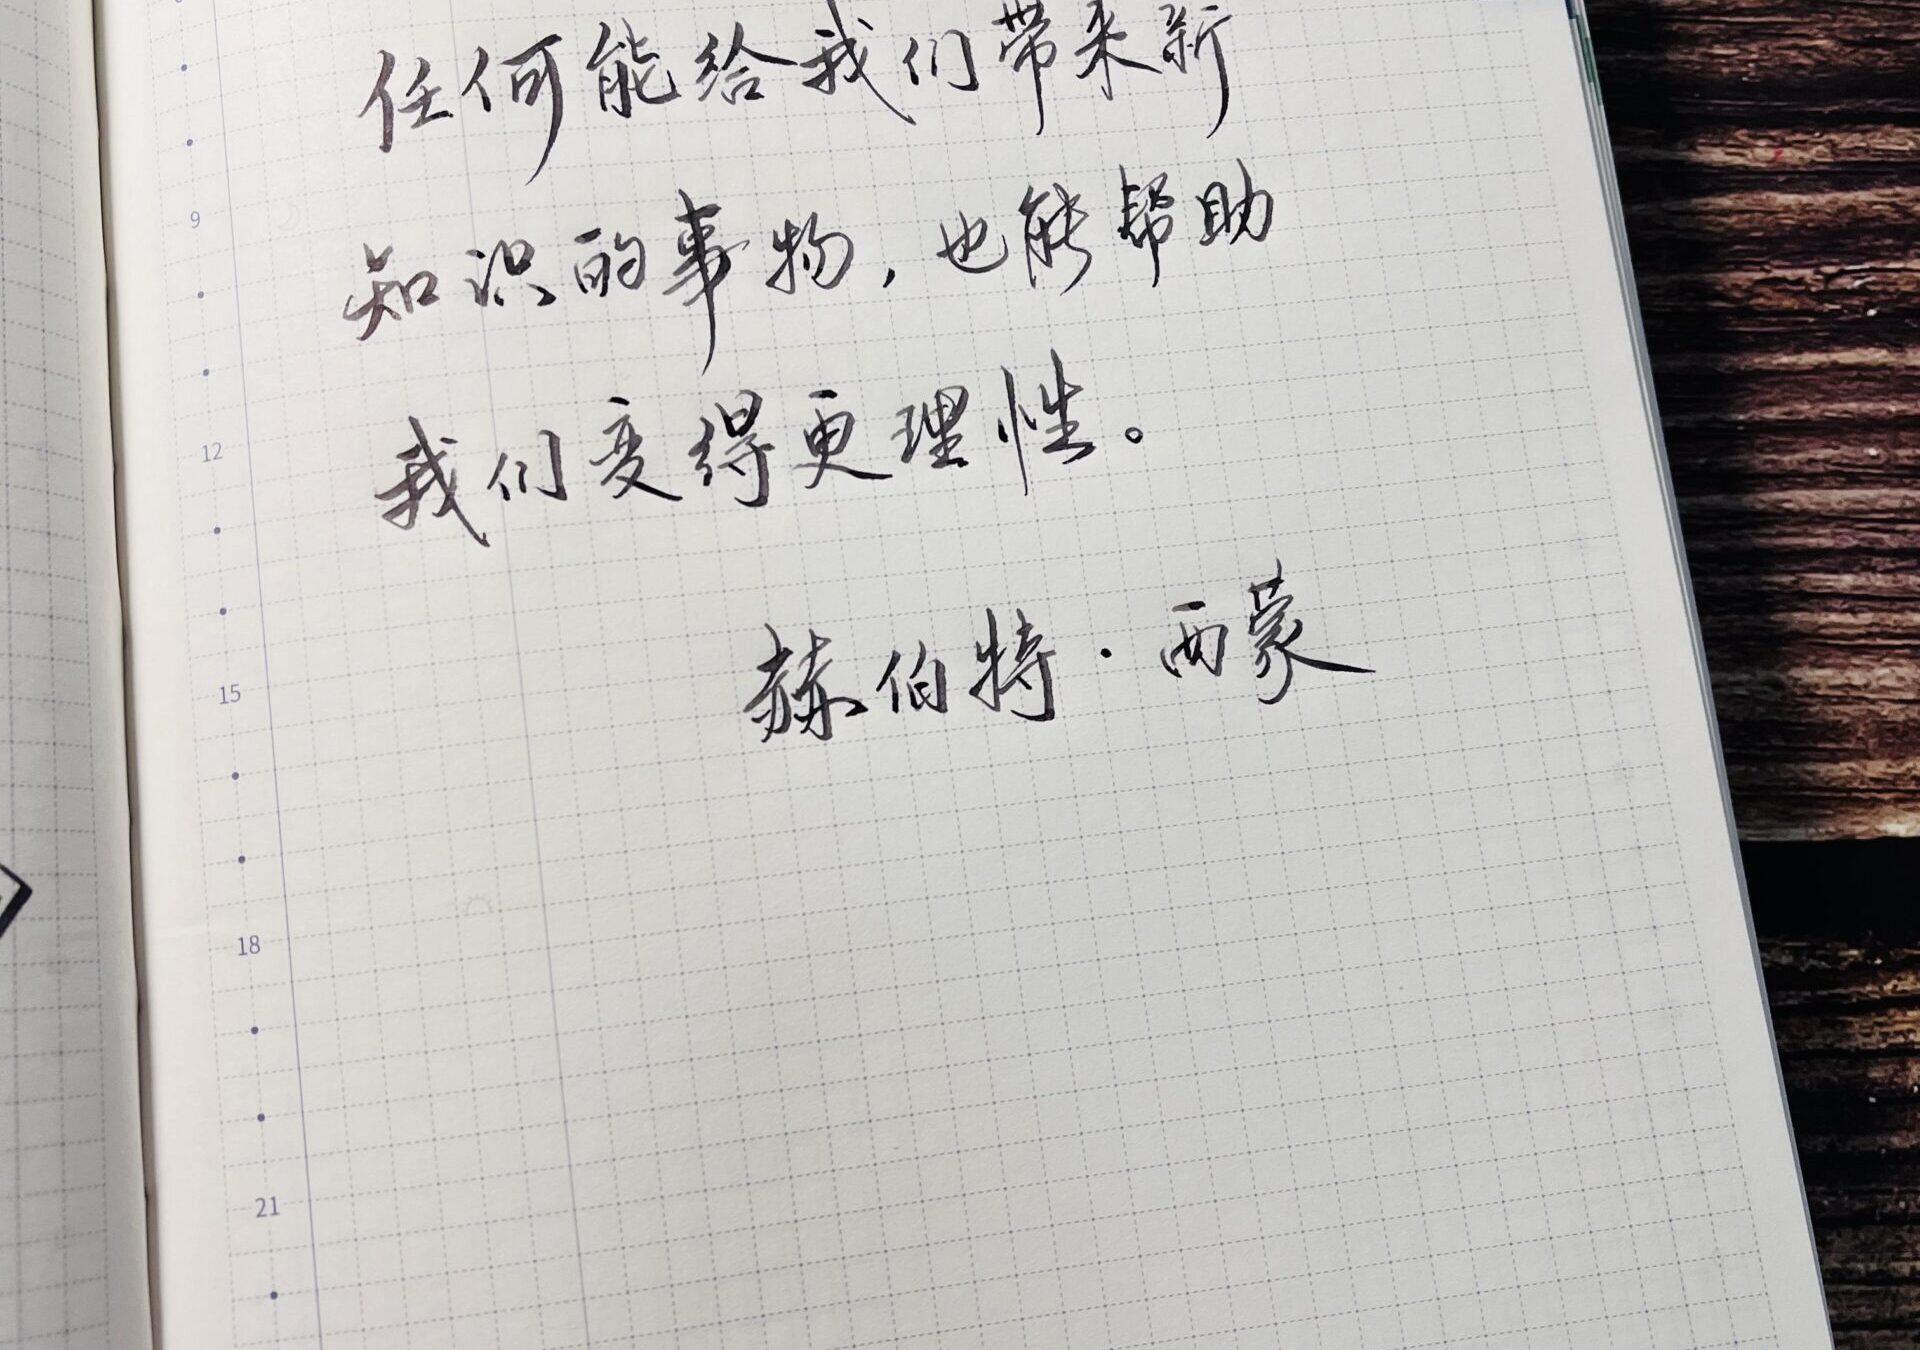 任何能给我们带来新
9
知识的事物，也能帮助
12
我们变得更理性。
15
赫伯特·西蒙
18
21